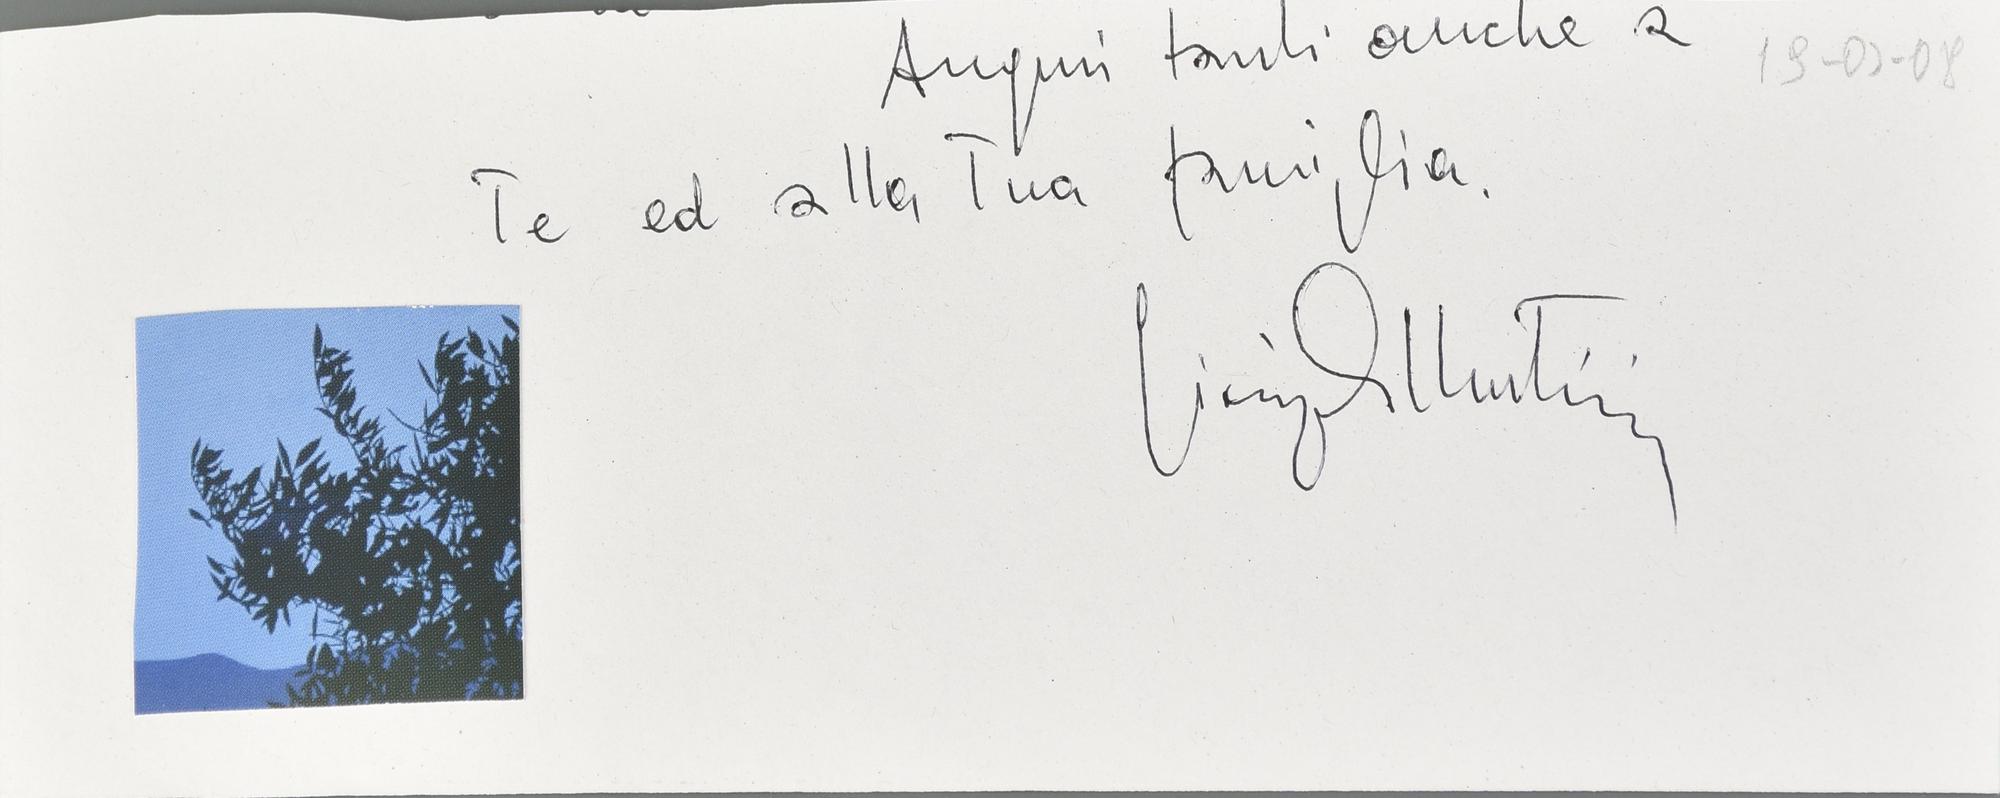 Auguri tanti anche a
19-03-08
Te ed alla Tua famiglia.